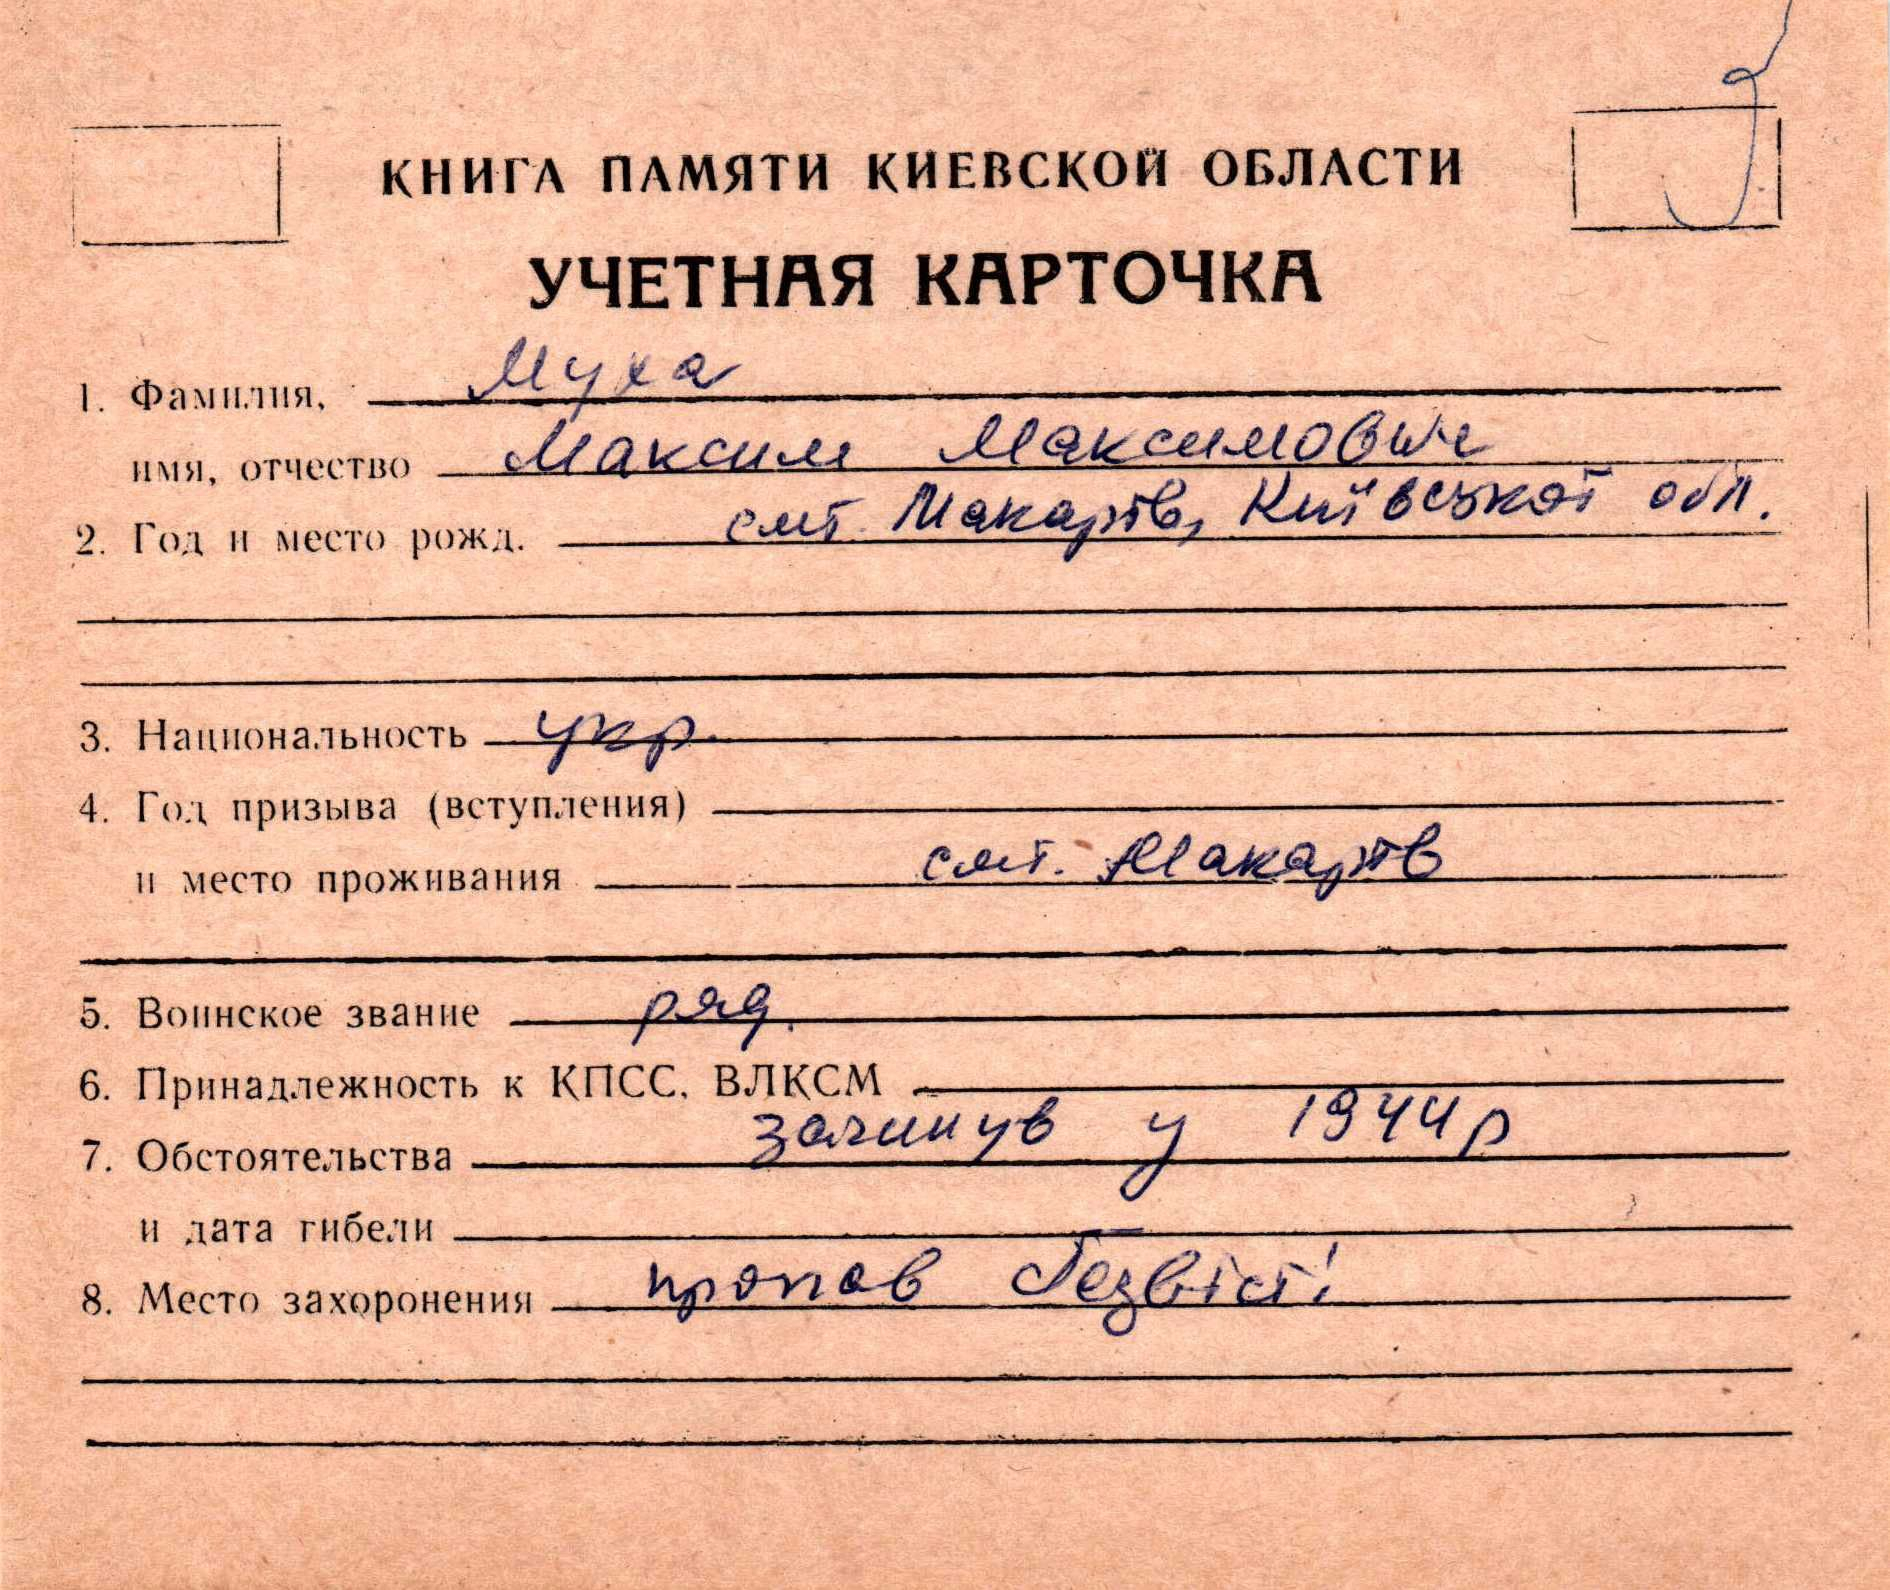 КНИГА ПАМЯТИ КИЕВСКОЙ ОБЛАСТИ
УЧЕТНАЯ КАРТОЧКА
1. Фамилия, Муха
имя, отчество Максим Максимович
2. Год и место рожд. смт. Макарів, Київської обл.
3. Национальность укр.
4. Год призыва (вступления)
и место проживания смт. Макарів
5. Воинское звание ряд.
6. Принадлежность к КПСС, ВЛКСМ
7. Обстоятельства загинув у 1944 р
и дата гибели
8. Место захоронения пропав безвісті